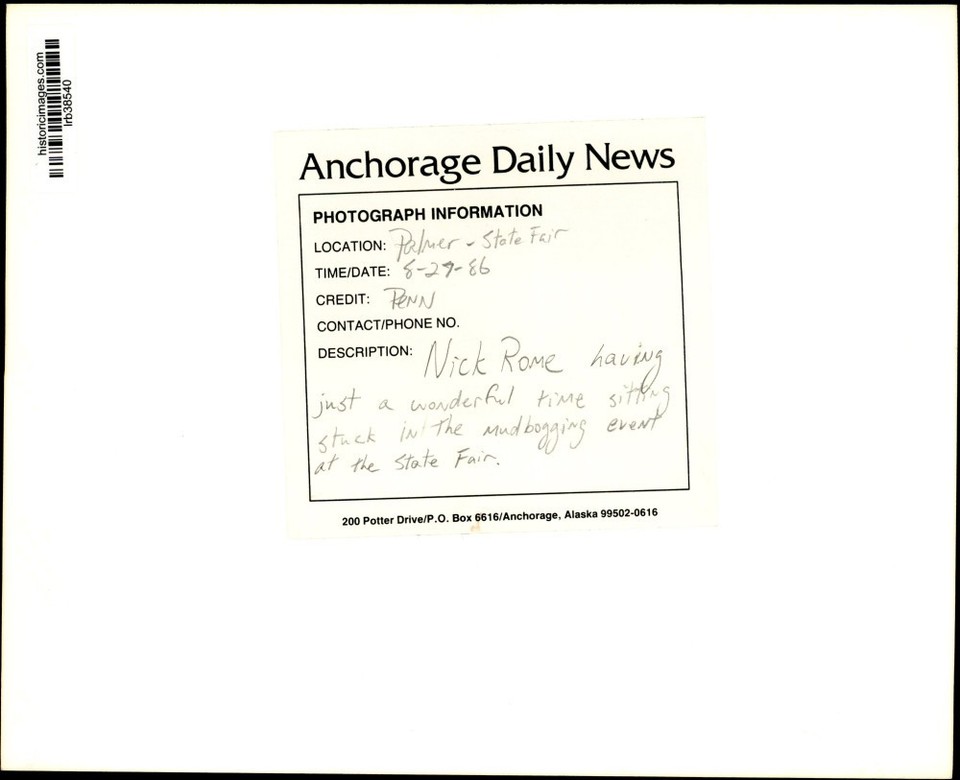 historicimages.com
lrb38540
Anchorage Daily News
PHOTOGRAPH INFORMATION
LOCATION: Palmer - State Fair
TIME/DATE: 8-29-86
CREDIT: PENN
CONTACT/PHONE NO.
DESCRIPTION: Nick Rome having
just a wonderful time sitting
stuck in the mudbogging event
at the State Fair.
200 Potter Drive/P.O. Box 6616/Anchorage, Alaska 99502-0616